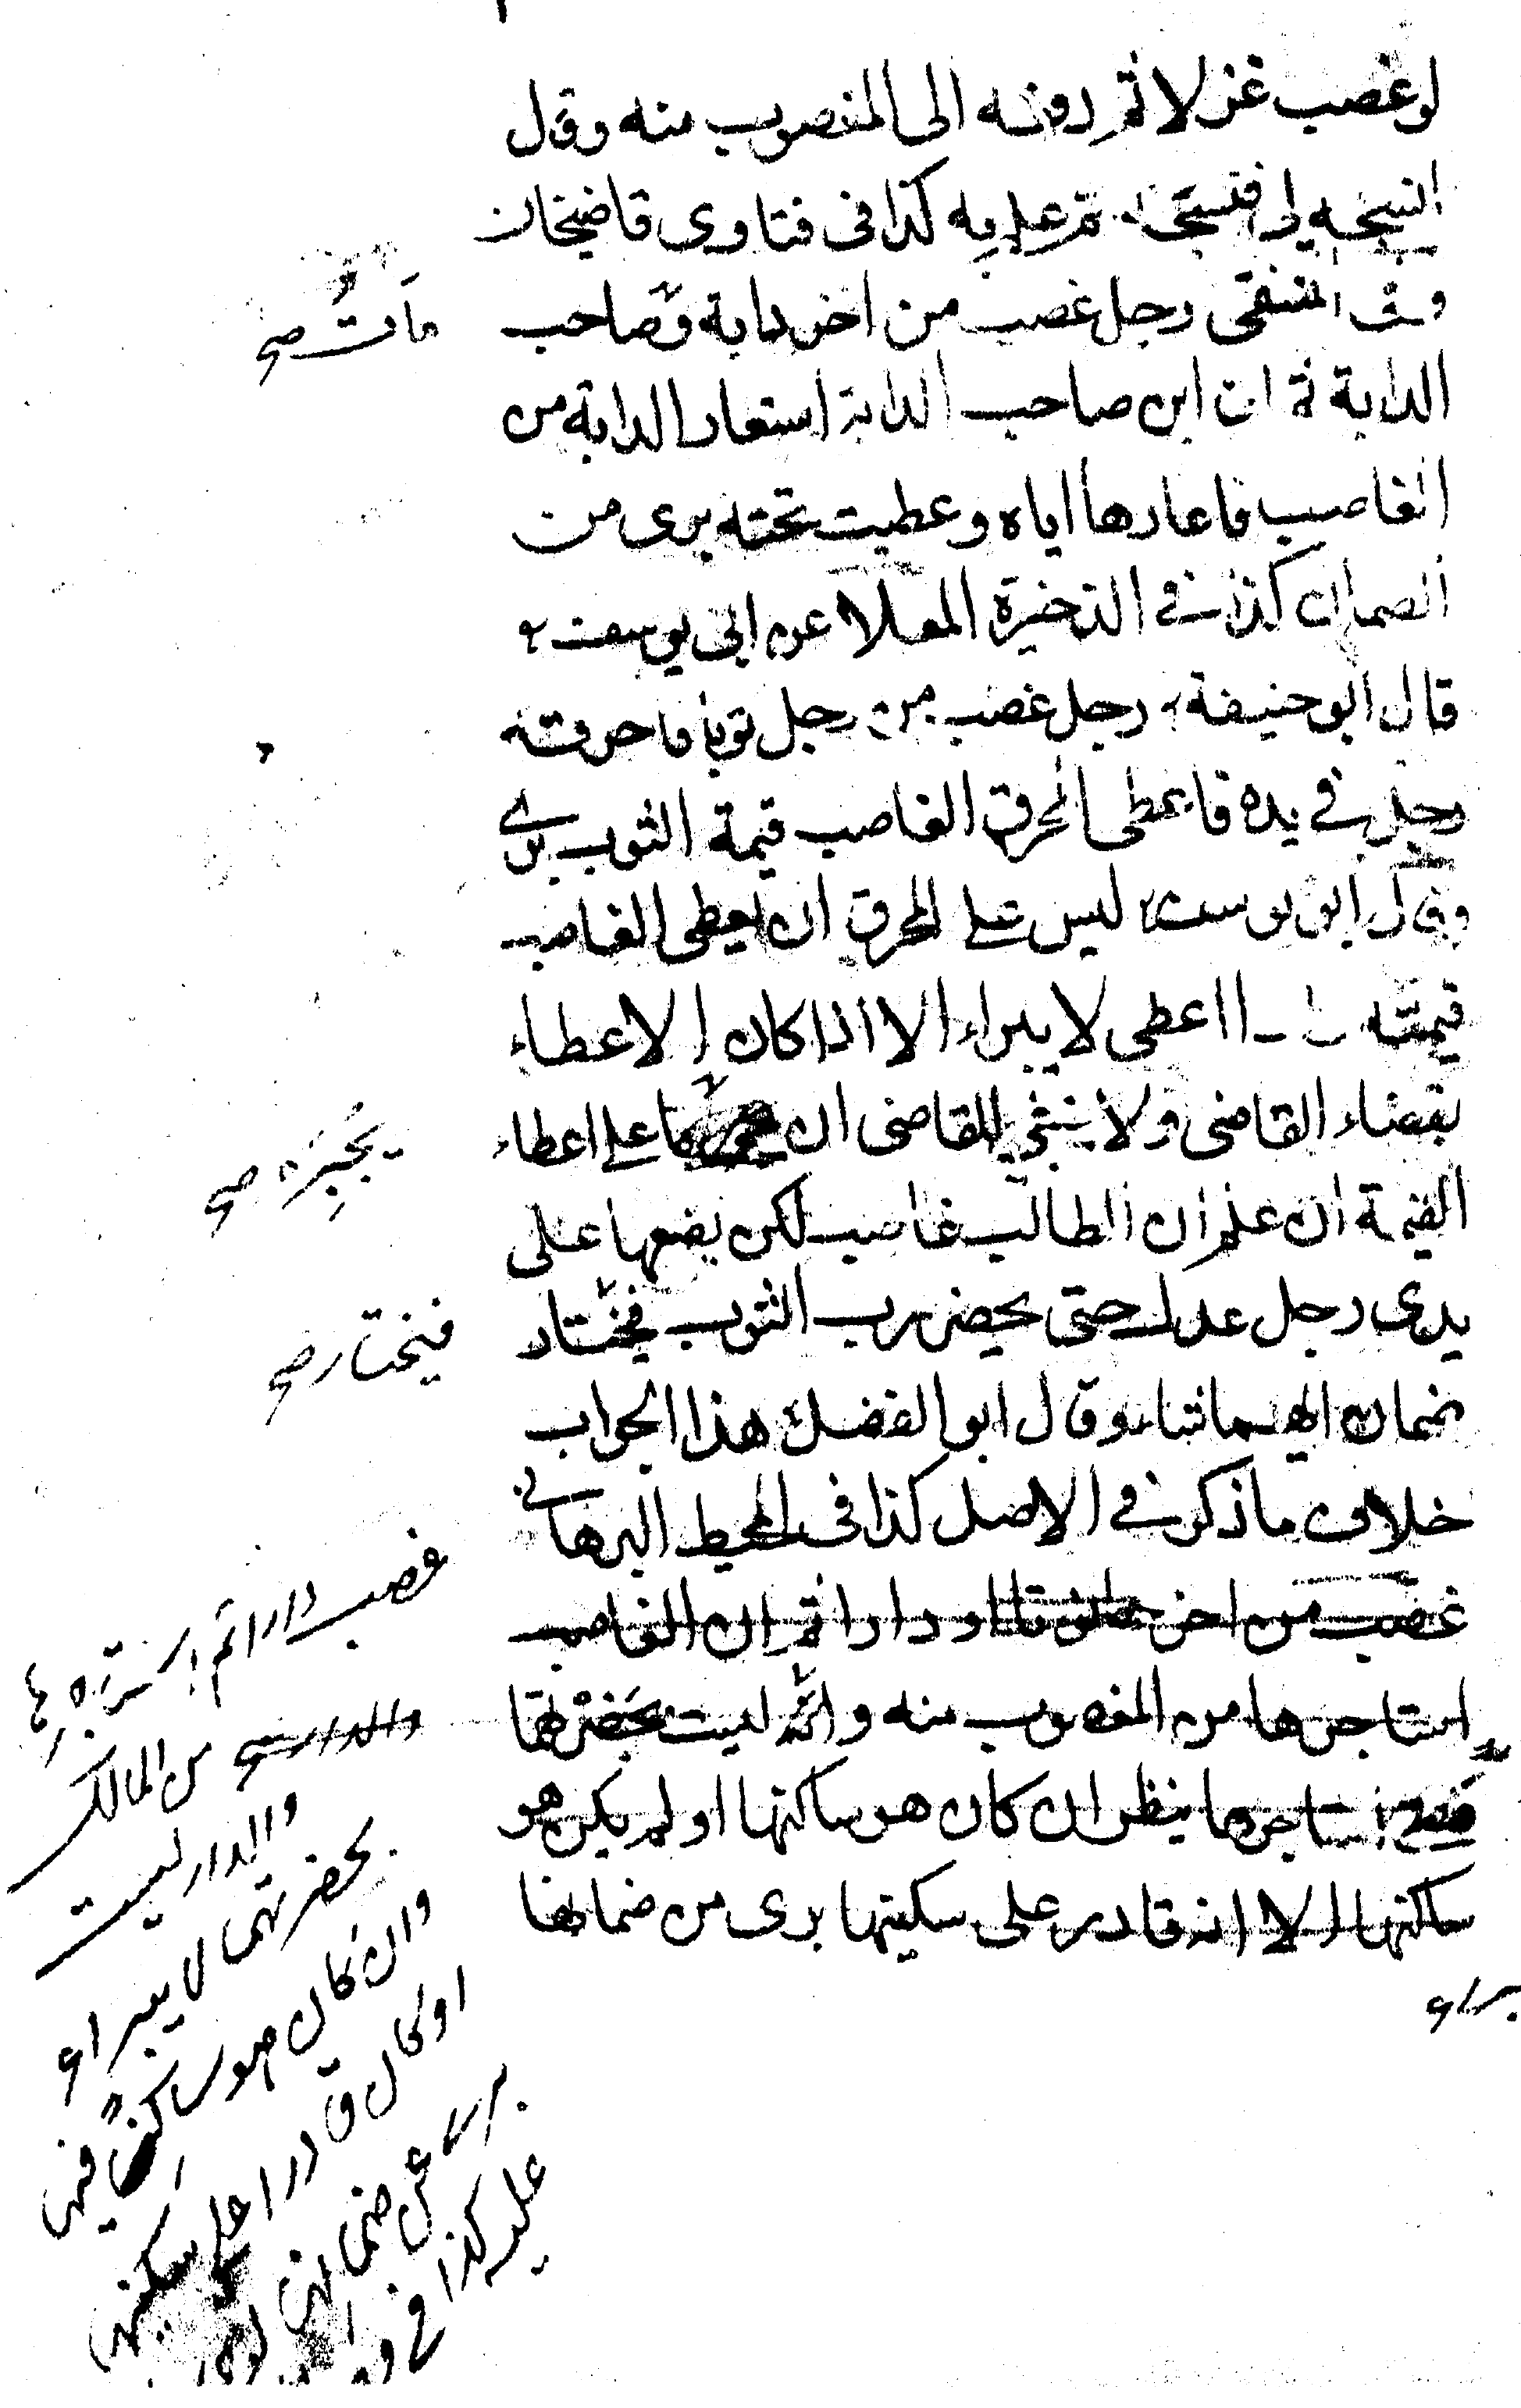 لو غصب غزلا ثم دفعه الى المغصوب منه وقال
انسجه لى فنسجه ثم علم به كذا فى فتاوى قاضيخان
وفى المنتقى رجل غصب من اخر دابة وصاحب
الدابة ثم ان ابن صاحب الدابة استعار الدابة من
الغاصب فاعارها اياه وعطبت تحته برى من
الضمان كذا فى الذخيرة المعلا عن ابى يوسف
قال ابو حنيفة رجل غصب من رجل ثوبا فاحرقه
رجل فى يده فاعطى المحرق الغاصب قيمة الثوب برئ
وقال ابو يوسف ليس على المحرق ان يعطى الغاصب
قيمته اعطى لا يبراء الا اذا كان الاعطاء
بقضاء القاضى ولا ينبغى للقاضى ان على اعطاء
القيمة ان علم ان الطالب غاصب لكن يضعها على
يدى رجل عدل حتى يحضر رب الثوب فيختار
ضمان ايهما شاء وقال ابو الفضل هذا الجواب
خلاف ما ذكر فى الاصل كذا فى المحيط البرهانى
غصب من اخر او دارا ثم ان الغاصب
استاجرها من المغصوب منه ليست بحضرتها
استاجرها ينظر ان كان هو ساكنها او لم يكن هو
ساكنها الا انه قادر على سكينها برى من ضمانها
مات صح
يجبره صح
فيختار صح
غصب دارا ثم استاجرها
من المالك
والدار ليست
بحضرتهما لا يبراء
وان كان هو ساكنا فيها
او كان قادرا على سكنها
برئ عن ضمانها
عليه كذا فى